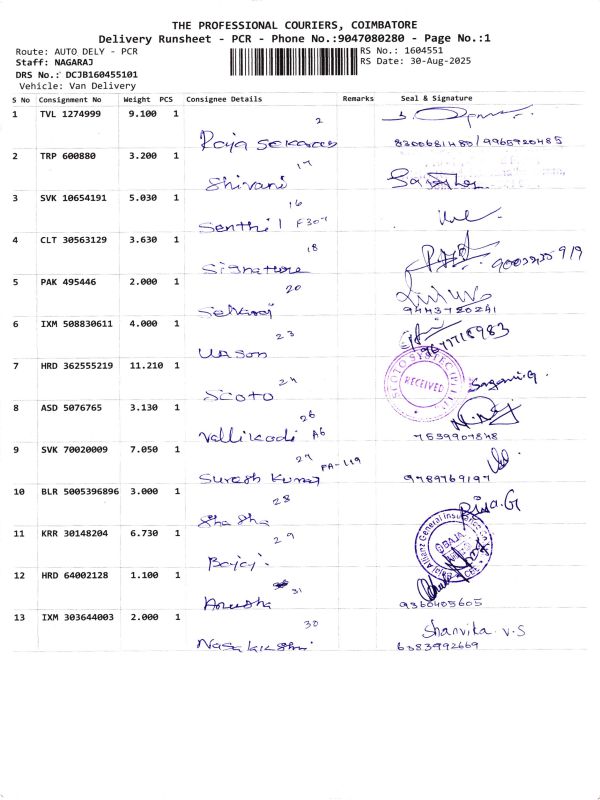 THE PROFESSIONAL COURIERS, COIMBATORE
Delivery Runsheet - PCR - Phone No.:9047080280 - Page No.:1
Route: AUTO DELY - PCR RS No.: 1604551
Staff: NAGARAJ RS Date: 30-Aug-2025
DRS No.: DCJB160455101
Vehicle: Van Delivery
S No Consignment No Weight PCS Consignee Details Remarks Seal & Signature
1 TVL 1274999 9.100 1 2
Raja Sekaran 8300681480/9965920485
2 TRP 600880 3.200 1 17
Shivani
3 SVK 10654191 5.030 1 16
Senthil F307
4 CLT 30563129 3.630 1 18
Signature
5 PAK 495446 2.000 1 20
Selvaraj 9443720241
6 IXM 508830611 4.000 1 23
9677718983
7 HRD 362555219 11.210 1 24
Scoto RECEIVED
8 ASD 5076765 3.130 1 26
Vallikodi A6 7639907848
9 SVK 70020009 7.050 1 27 PA-L19
Suresh Kumar 9789769197
10 BLR 5005396896 3.000 1 28
Sha Sha Priya.G
11 KRR 30148204 6.730 1 29
Bajaj Allianz General Insurance
12 HRD 64002128 1.100 1 31
Anusha 9360405605
13 IXM 303644003 2.000 1 30 Shanvika v.S
6383992669